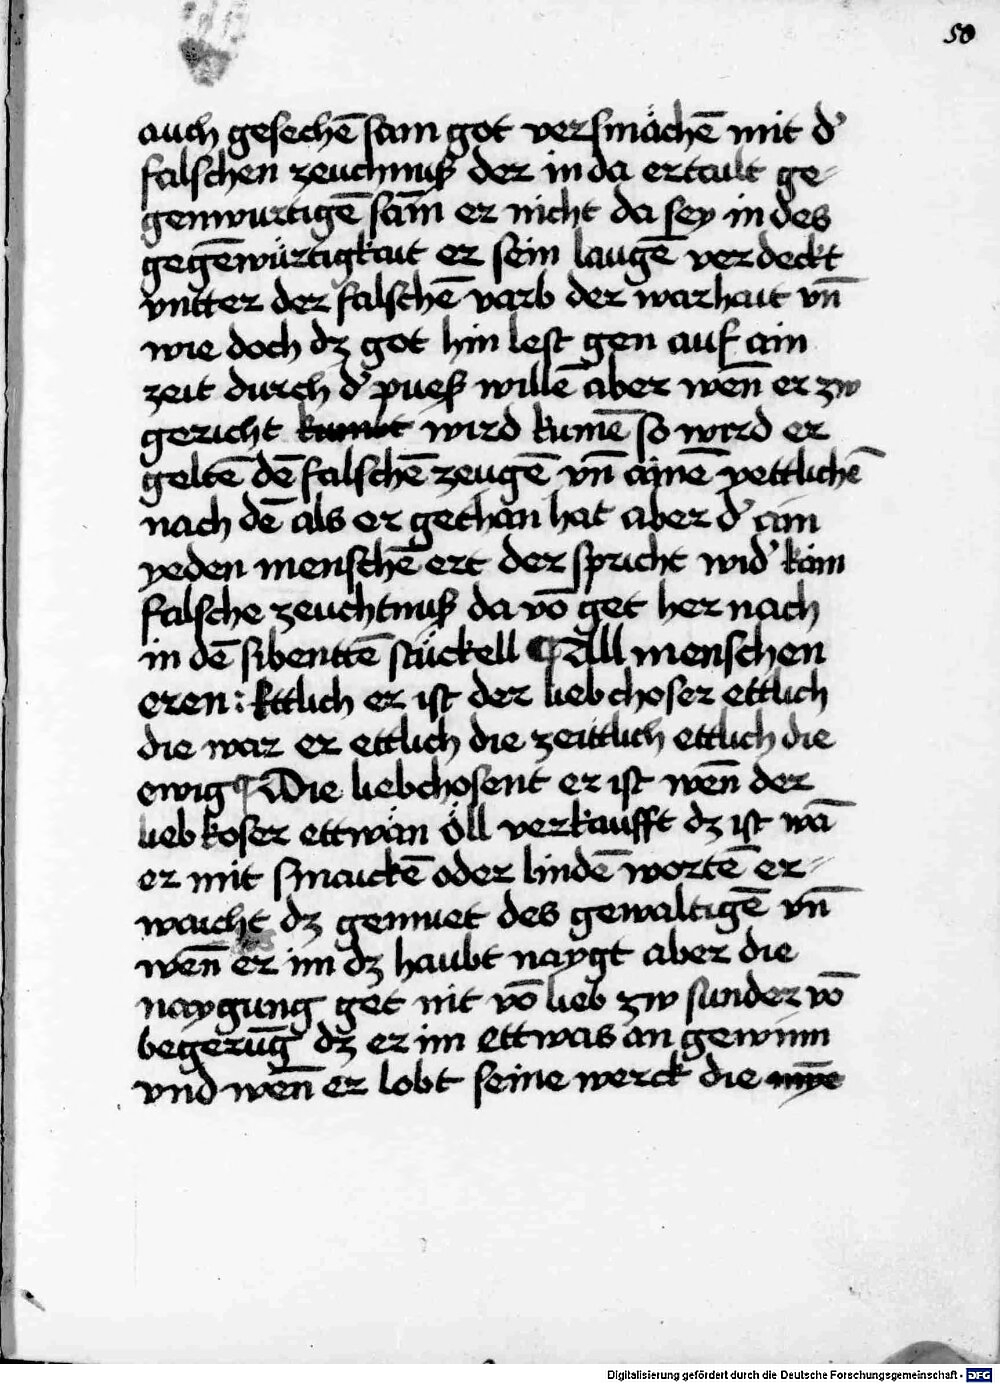 50
auch gesechē sam got versmächē mit d'
falschen zeuchnuß der in da ertailt ge-
genwurtigē sam̄ er nicht da sey in des
gegēwürtigkait er sein laugē verdeckt
vntter der falschē varb der warhait vn̄
wie doch dz got hin lest gen auf ain
zeit durch d' pueß willē aber wen̄ er zw
gericht kumbt wird kumē so wird er
geltē dē falschē zeugē vn̄ ainē yettlichē
nach dē als er gethan hat aber d' ain
yeden menschē ert der spricht wid' kain
falsche zeuchtnuß da vō get her nach
in dē sibenttē stückell ¶ All menschen
eren: Ettlich er ist der liebchoser ettlich
die war er ettlich die zeittlich ettlich die
ewig ¶ Die liebchosent er ist wen̄ der
liebkoser ettwan öll verkaufft dz ist wā
er mit smaickē oder lindē wortē er-
waicht dz gemuet des gewaltigē vn̄
wen̄ er im dz haubt naygt aber die
naygung get nit vō lieb zw sunder vō
begerūg dz er im ettwas an gewinn
vnd wen̄ er lobt seine werck die
Digitalisierung gefördert durch die Deutsche Forschungsgemeinschaft - DFG